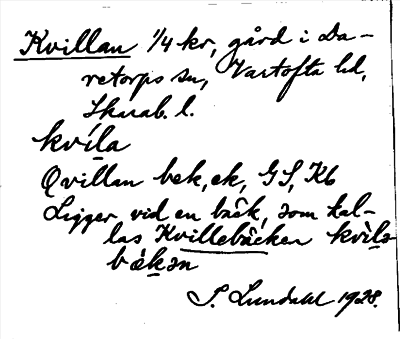 Kvillan 1/4 kr, gård i Da-
retorps sn, Vartofta hd,
Skarab. l.
kvila
Qvillan bek, ek, GS, Kb
Ligger vid en bäck, som kal-
las Kvillebäcken kvìlə
bækən
S. Lundahl 1928.